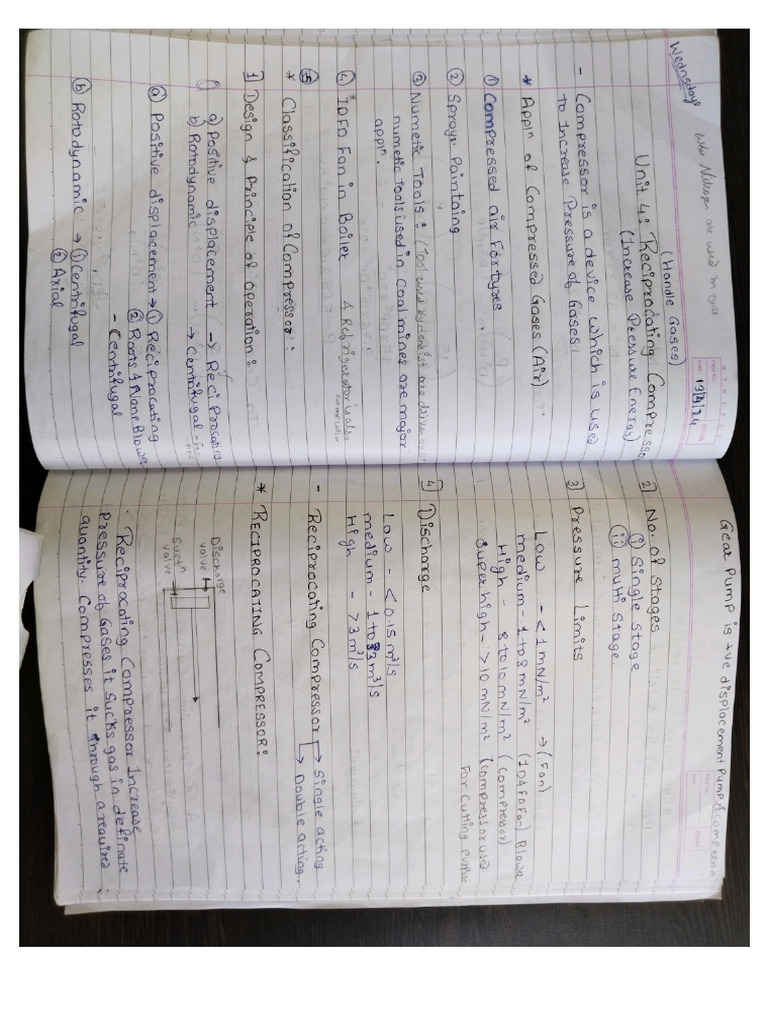 Wednesday
Nitrogen are used in
13/3/24
(Handle Gases)
Unit 4: Reciprocating Compresso
(Increase Pressure Energy)
- Compressor is a device which is used
to Increase Pressure of Gases.
* Appln of Compressed Gases (Air)
① Compressed air for tyres
② Sprayn Paintaing
③ Numetic Tools : (Tool used by dentist are driven
numetic tools used in Coal mines are major
appln.
④ IDFD Fan in Boiler
⑤
* Classification of Compressor :
1 Design & Principle of operation :
a) Positive displacement → Reciprocating
b) Rotodynamic → Centrifugal - Fan
ⓐ Positive displacement → ① Reciprocating
② Roots & Vane Blower
- Centrifugal
ⓑ Rotodynamic → ① Centrifugal
② Axial
Gear Pump is +ve displacement Pump &
2] No. of Stages
(i) Single Stage
(ii) multi Stage
3] Pressure Limits
Low - < 1 mN/m² → (Fan)
medium - 1 to 8 mN/m² (ID & FD Fan) Blowe
High - 8 to 10 mN/m² (compressor)
Super high - > 10 mN/m² (compressor used
For Cutting Purpose
4] Discharge
Low - < 0.15 m³/s
medium - 1 to 3 m³/s
High - > 3 m³/s
- Reciprocating Compressor → Single acting
→ Double acting.
* RECIPROCATING COMPRESSOR:
Discharge
valve
Suctn
valve
Reciprocating Compressor Increase
Pressure of Gases it Sucks gas in definate
quantity. Compresses it through a required